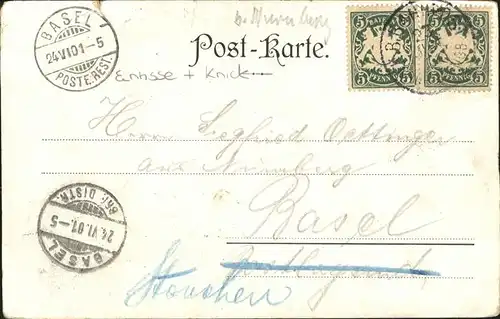 BASEL
24.VI.01.-5
POSTE.REST.
b. Nürnberg
Post-Karte.
Einrisse + Knick
BAYERN
5 5
PFENNIG
5 5
PFENNIG
Herrn Siegfried Oettinger
aus Nürnberg
Basel
postlagernd
BASEL
24.VI.01.-5
BRF. DISTR.